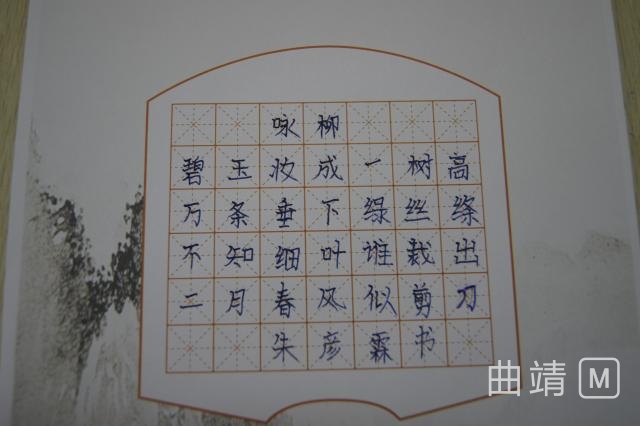 咏柳
碧玉妆成一树高
万条垂下绿丝绦
不知细叶谁裁出
二月春风似剪刀
朱彦霖书
曲靖M